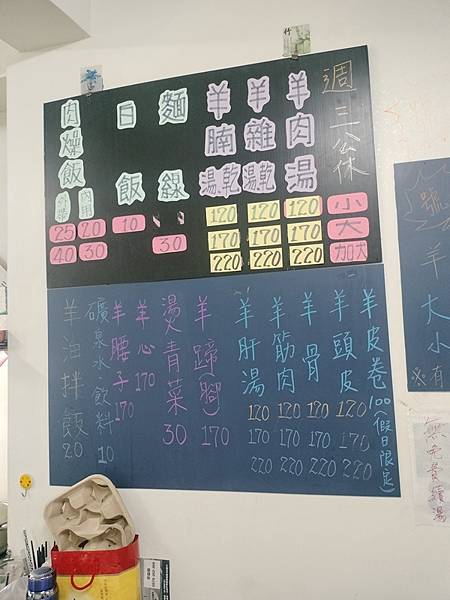 週三公休
小 大 加大
羊肉湯 120 170 220
羊雜湯乾 120 170 220
羊腩湯乾 120 170 220
麵線 30
白飯 10
肉燥飯
內用 20 30
外帶 25 40
羊皮卷 100(假日限定)
羊頭皮 120 170 220
羊骨 120 170 220
羊筋肉 120 170 220
羊肝湯 120 170 220
羊蹄(腳) 170
燙青菜 30
羊心 170
羊腰子 170
礦泉水飲料 10
羊油拌飯 20
號
羊
大小
※有
無免費續湯
竹